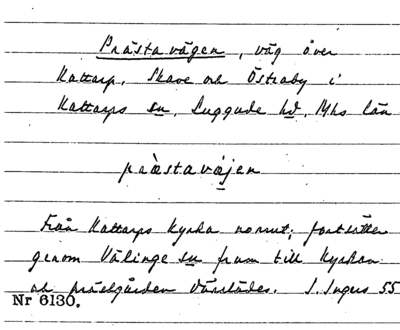 Prästavägen, väg över
Kattarp, Skave och Östraby i
Kattarps sn, Luggude hd, Mhs län
präestaväjen
Från Kattarps kyrka norrut; fortsätter
genom Välinge sn fram till kyrkan
och prästgården därstädes. I. Ingers 55
Nr 6130.